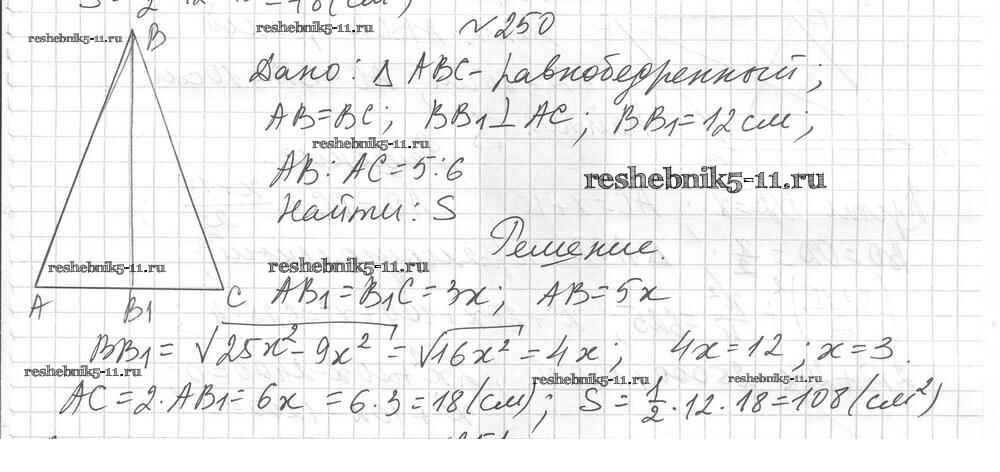 №250
reshebnik5-11.ru
reshebnik5-11.ru
B
Дано: Δ ABC - равнобедренный;
AB=BC; BB1⊥AC; BB1=12см;
reshebnik5-11.ru
AB:AC=5:6
reshebnik5-11.ru
Найти: S
Решение.
reshebnik5-11.ru
reshebnik5-11.ru
A
B1
C
AB1=B1C=3x; AB=5x
BB1=√25x²-9x²=√16x²=4x; 4x=12; x=3.
reshebnik5-11.ru
reshebnik5-11.ru
reshebnik5-11.ru
AC=2·AB1=6x=6·3=18(см); S=1/2·12·18=108(см²)